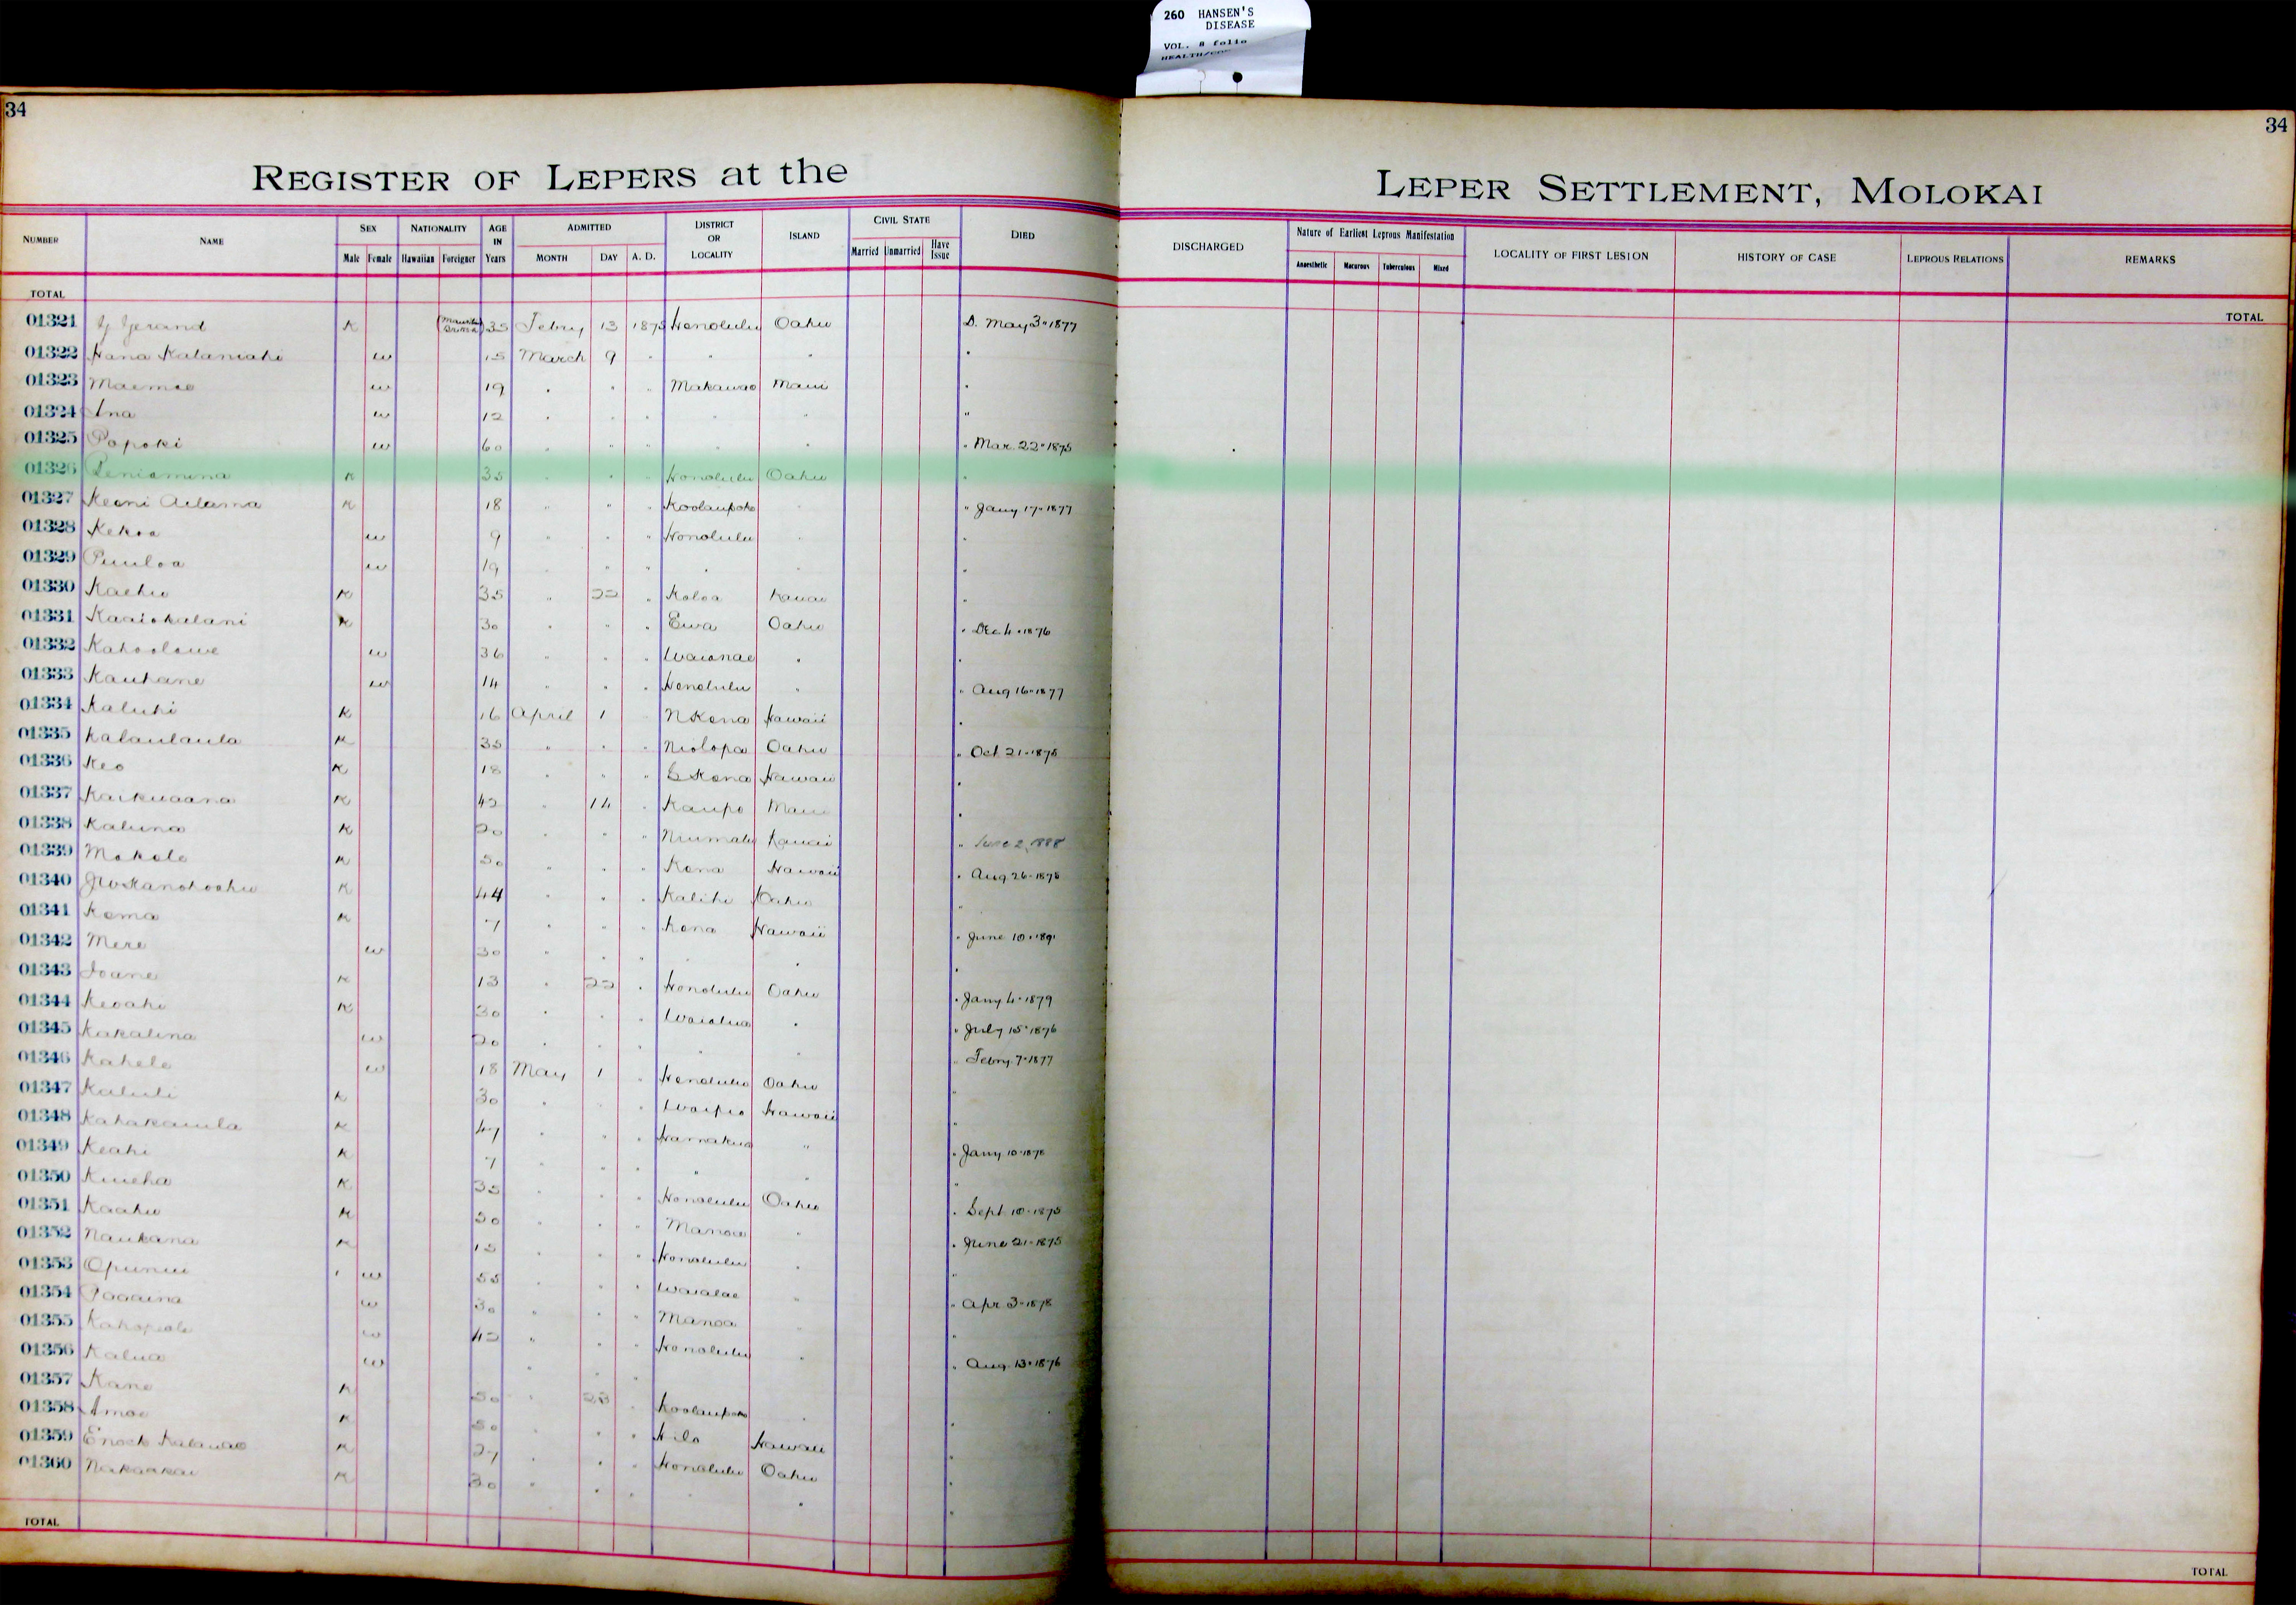 260 HANSEN'S
DISEASE
VOL. 8 folio
34
34
REGISTER OF LEPERS at the LEPER SETTLEMENT, MOLOKAI
NUMBER NAME SEX Male Female NATIONALITY Hawaiian Foreigner AGE IN Years ADMITTED MONTH DAY A. D. DISTRICT OR LOCALITY ISLAND CIVIL STATE Married Unmarried Have Issue DIED DISCHARGED Nature of Earliest Leprous Manifestation Anaesthetic Macurous Tuberculous Mixed LOCALITY OF FIRST LESION HISTORY OF CASE LEPROUS RELATIONS REMARKS
TOTAL TOTAL
01321 Gerand K 35 Febry 13 1875 Honolulu Oahu D. May 3" 1877
01322 Hana Kalaniahi w 15 March 9 " " " "
01323 Maemae w 19 " " " Makawao Maui "
01324 Ina w 12 " " " " " "
01325 Popoki w 60 " " " " " " Mar. 22" 1875
01326 Peniamina K 35 " " " Honolulu Oahu "
01327 Keoni Adama K 18 " " " Koolaupoko " " Jany 17" 1877
01328 Kekoa w 9 " " " Honolulu " "
01329 Puuloa w 19 " " " " " "
01330 Kaehu K 35 " 22 " Koloa Kauai "
01331 Kaaiokalani K 30 " " " Ewa Oahu " Dec 4" 1876
01332 Kahoolawe w 36 " " " Waianae " "
01333 Kauhane w 14 " " " Honolulu " " Aug 16" 1877
01334 Kaluhi K 16 April 1 " N Kona Hawaii "
01335 Kalaulaula K 35 " " " Niolopa Oahu " Oct 21" 1875
01336 Keo K 18 " " " S Kona Hawaii "
01337 Kaikuaana K 42 " 14 " Kaupo Maui "
01338 Kaluna K 20 " " " Niumalu Kauai " June 2, 1888
01339 Makole K 50 " " " Kona Hawaii " Aug 26" 1878
01340 K 44 " " " Kalihi Oahu "
01341 Kema K 7 " " " Kona Hawaii " June 10" 1891
01342 Mere w 30 " " " " " "
01343 Ioane K 13 " 22 " Honolulu Oahu " Jany 4" 1879
01344 Keoahi K 30 " " " Waialua " " July 15" 1876
01345 Kakalina w 20 " " " " " " Febry 7" 1877
01346 Kahele w 18 May 1 " Honolulu Oahu "
01347 Kaluli K 30 " " " Waipio Hawaii "
01348 Kahakauila K 47 " " " Hamakua " " Jany 10" 1878
01349 Keahi K 7 " " " " " "
01350 Kuueha K 35 " " " Honolulu Oahu " Sept 10" 1875
01351 Kaahu K 50 " " " Manoa " " June 21" 1875
01352 Naukana K 15 " " " Honolulu " "
01353 Opunui w 55 " " " Waialae " " Apr 3" 1878
01354 Paaaina w 30 " " " Manoa " "
01355 w 42 " " " Honolulu " " Aug. 13" 1876
01356 Kalua w " " "
01357 Kane K 50 " 23 " Koolaupoko " "
01358 Amoe K 50 " " " Hilo Hawaii "
01359 Enoch Kalauao K 27 " " " Honolulu Oahu "
01360 Nakaakai K 30 " " " " " "
TOTAL TOTAL